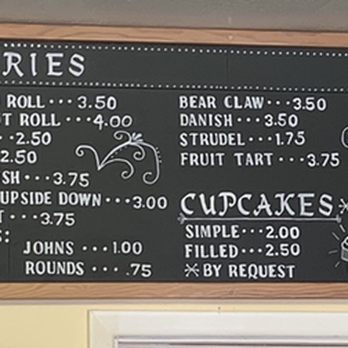 RIES
ROLL···3.50
T ROLL···4.00
··2.50
2.50
SH···3.75
UPSIDE DOWN···3.00
T···3.75
:
JOHNS ···1.00
ROUNDS ··· .75
BEAR CLAW···3.50
DANISH···3.50
STRUDEL···1.75
FRUIT TART···3.75
CUPCAKES*
SIMPLE···2.00
FILLED···2.50
*BY REQUEST